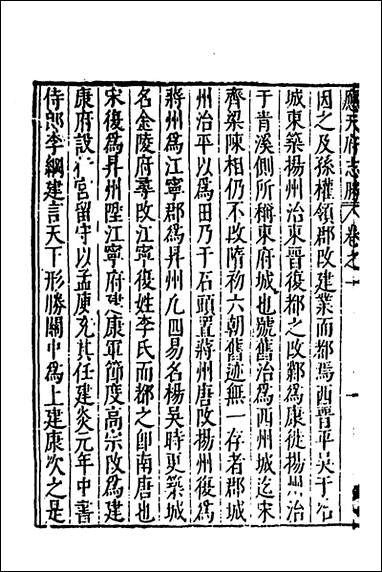 應天府志勝　卷之一
因之及孫權領郡改建業而都焉西晉平吳于石
城東築揚州治東晉復都之改鄴爲康徙揚州治
于青溪側所稱東府城也號舊治爲西州城迄宋
齊梁陳相仍不改隋初六朝舊迹無一存者郡城
州治平以爲田乃于石頭置蔣州唐改揚州復爲
蔣州爲江寧郡爲昇州凡四易名楊吳時更築城
名金陵府尋改江寧復姓李氏而都之卽南唐也
宋復爲昇州陞江寧府建康軍節度高宗改爲建
康府設行宮留守以孟庾充其任建炎元年中書
侍郎李綱建言天下形勝關中爲上建康次之是